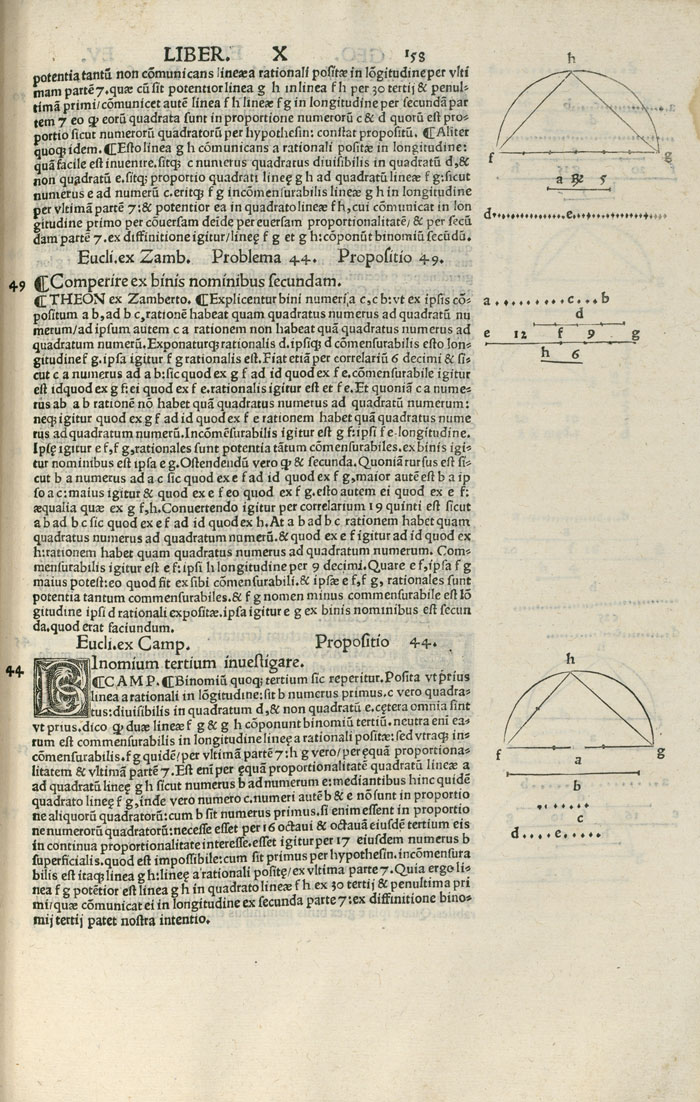 LIBER. X 158
potentia tantũ non cõmunicans lineæ a rationali positæ in lõgitudine per vlti
mam partẽ 7. quæ cũ sit potentior linea g h in linea f h per 30 tertij & penul-
timã primi/cõmunicet autẽ linea f h lineæ f g in longitudine per secundã par
tem 7 eo ꝙ eorũ quadrata sunt in proportione numerorũ c & d quorũ est pro-
portio sicut numerorũ quadratorũ per hypothesin: constat propositũ. ¶Aliter
quoqꝫ idem. ¶Esto linea g h cõmunicans a rationali positæ in longitudine:
quã facile est inuenire. sitqꝫ c numerus quadratus diuisibilis in quadratũ d, &
non quadratũ e. sitqꝫ proportio quadrati lineę g h ad quadratũ lineæ f g: sicut
numerus e ad numerũ c. eritqꝫ f g incõmensurabilis lineæ g h in longitudine
per vltimã partẽ 7: & potentior ea in quadrato lineæ f h, cui cõmunicat in lon
gitudine primo per cõuersam deĩde per euersam proportionalitatẽ/ & per secũ
dam partẽ 7. ex diffinitione igitur/lineę f g et g h: cõponũt binomiũ secũdũ.
Eucli. ex Zamb. Problema 44. Propositio 49.
49 ¶Comperire ex binis nominibus secundam.
¶THEON ex Zamberto. ¶Explicentur bini numeri a c, c b: vt ex ipsis cõ-
positum a b, ad b c, rationẽ habeat quam quadratus numerus ad quadratũ nu
merum/ad ipsum autem c a rationem non habeat quã quadratus numerus ad
quadratum numerũ. Exponaturqꝫ rationalis d. ipsiqꝫ d cõmensurabilis esto lon-
gitudine f g. ipsa igitur f g rationalis est. Fiat etiã per correlariũ 6 decimi & si-
cut c a numerus ad a b: sic quod ex g f ad id quod ex f e. cõmensurabile igitur
est id quod ex g f: ei quod ex f e. rationalis igitur est et f e. Et quoniã c a nume-
rus ab a b rationẽ nõ habet quã quadratus numerus ad quadratũ numerum:
neqꝫ igitur quod ex g f ad id quod ex f e rationem habet quã quadratus nume
rus ad quadratum numerũ. Incõmẽsurabilis igitur est g f: ipsi f e longitudine.
Ipsę igitur e f, f g, rationales sunt potentia tãtum cõmensurabiles. ex binis igi-
tur nominibus est ipsa e g. Ostendendũ vero ꝙ & secunda. Quoniã rursus est si-
cut b a numerus ad a c sic quod ex e f ad id quod ex f g, maior autẽ est b a ip
so a c: maius igitur & quod ex e f eo quod ex f g. esto autem ei quod ex e f:
æqualia quæ ex g f, h. Conuertendo igitur per correlarium 19 quinti est sicut
a b ad b c sic quod ex e f ad id quod ex h. At a b ad b c rationem habet quam
quadratus numerus ad quadratum numerũ. & quod ex e f igitur ad id quod ex
h: rationem habet quam quadratus numerus ad quadratum numerum. Com-
mensurabilis igitur est e f: ipsi h longitudine per 9 decimi. Quare e f, ipsa f g
maius potest: eo quod fit ex sibi cõmensurabili. & ipsæ e f, f g, rationales sunt
potentia tantum commensurabiles. & f g nomen minus commensurabile est lõ
gitudine ipsi d rationali expositæ. ipsa igitur e g ex binis nominibus est secun
da. quod erat faciundum.
Eucli. ex Camp. Propositio 44.
44 BInomium tertium inuestigare.
¶CAMP. ¶Binomiũ quoqꝫ tertium sic reperitur. Posita vt p̃rius
linea a rationali in lõgitudine: sit b numerus primus. c vero quadra-
tus: diuisibilis in quadratum d, & non quadratũ e. cętera omnia sint
vt prius. dico ꝙ duæ lineæ f g & g h cõponunt binomiũ tertiũ. neutra eni ea-
rum est commensurabilis in longitudine lineę a rationali positæ: sed vtraqꝫ in-
cõmensurabilis. f g quidẽ/per vltimã partẽ 7: h g vero/per ęquã proportiona-
litatem & vltimã partẽ 7. Est enĩ per ęquã proportionalitatẽ quadratũ lineæ a
ad quadratũ lineę g h sicut numerus b ad numerum e: mediantibus hinc quidẽ
quadrato lineę f g, inde vero numero c. numeri autẽ b & e nõ sunt in proportio
ne aliquorũ quadratorũ: cum b sit numerus primus. si enim essent in proportio
ne numerorũ quadratorũ: necesse esset per 16 octaui & octauã eiusdẽ tertium eis
in continua proportionalitate interesse. esset igitur per 17 eiusdem numerus b
superficialis. quod est impossibile: cum sit primus per hypothesin. incõmensura
bilis est itaqꝫ linea g h: lineę a rationali positę/ex vltima parte 7. Quia ergo li-
nea f g potẽtior est linea g h in quadrato lineæ f h ex 30 tertij & penultima pri
mi/quæ cõmunicat ei in longitudine ex secunda parte 7: ex diffinitione bino-
mij tertij patet nostra intentio.
h
f g
a 5
d e
a c b
d
e 12 f 9 g
h 6
h
f g
a
b
c
d e